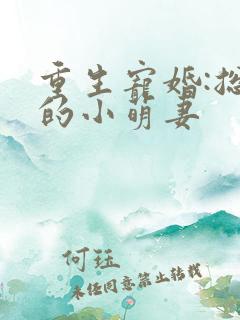 重生宠婚:总
的小萌妻
何珏
未经同意禁止转载